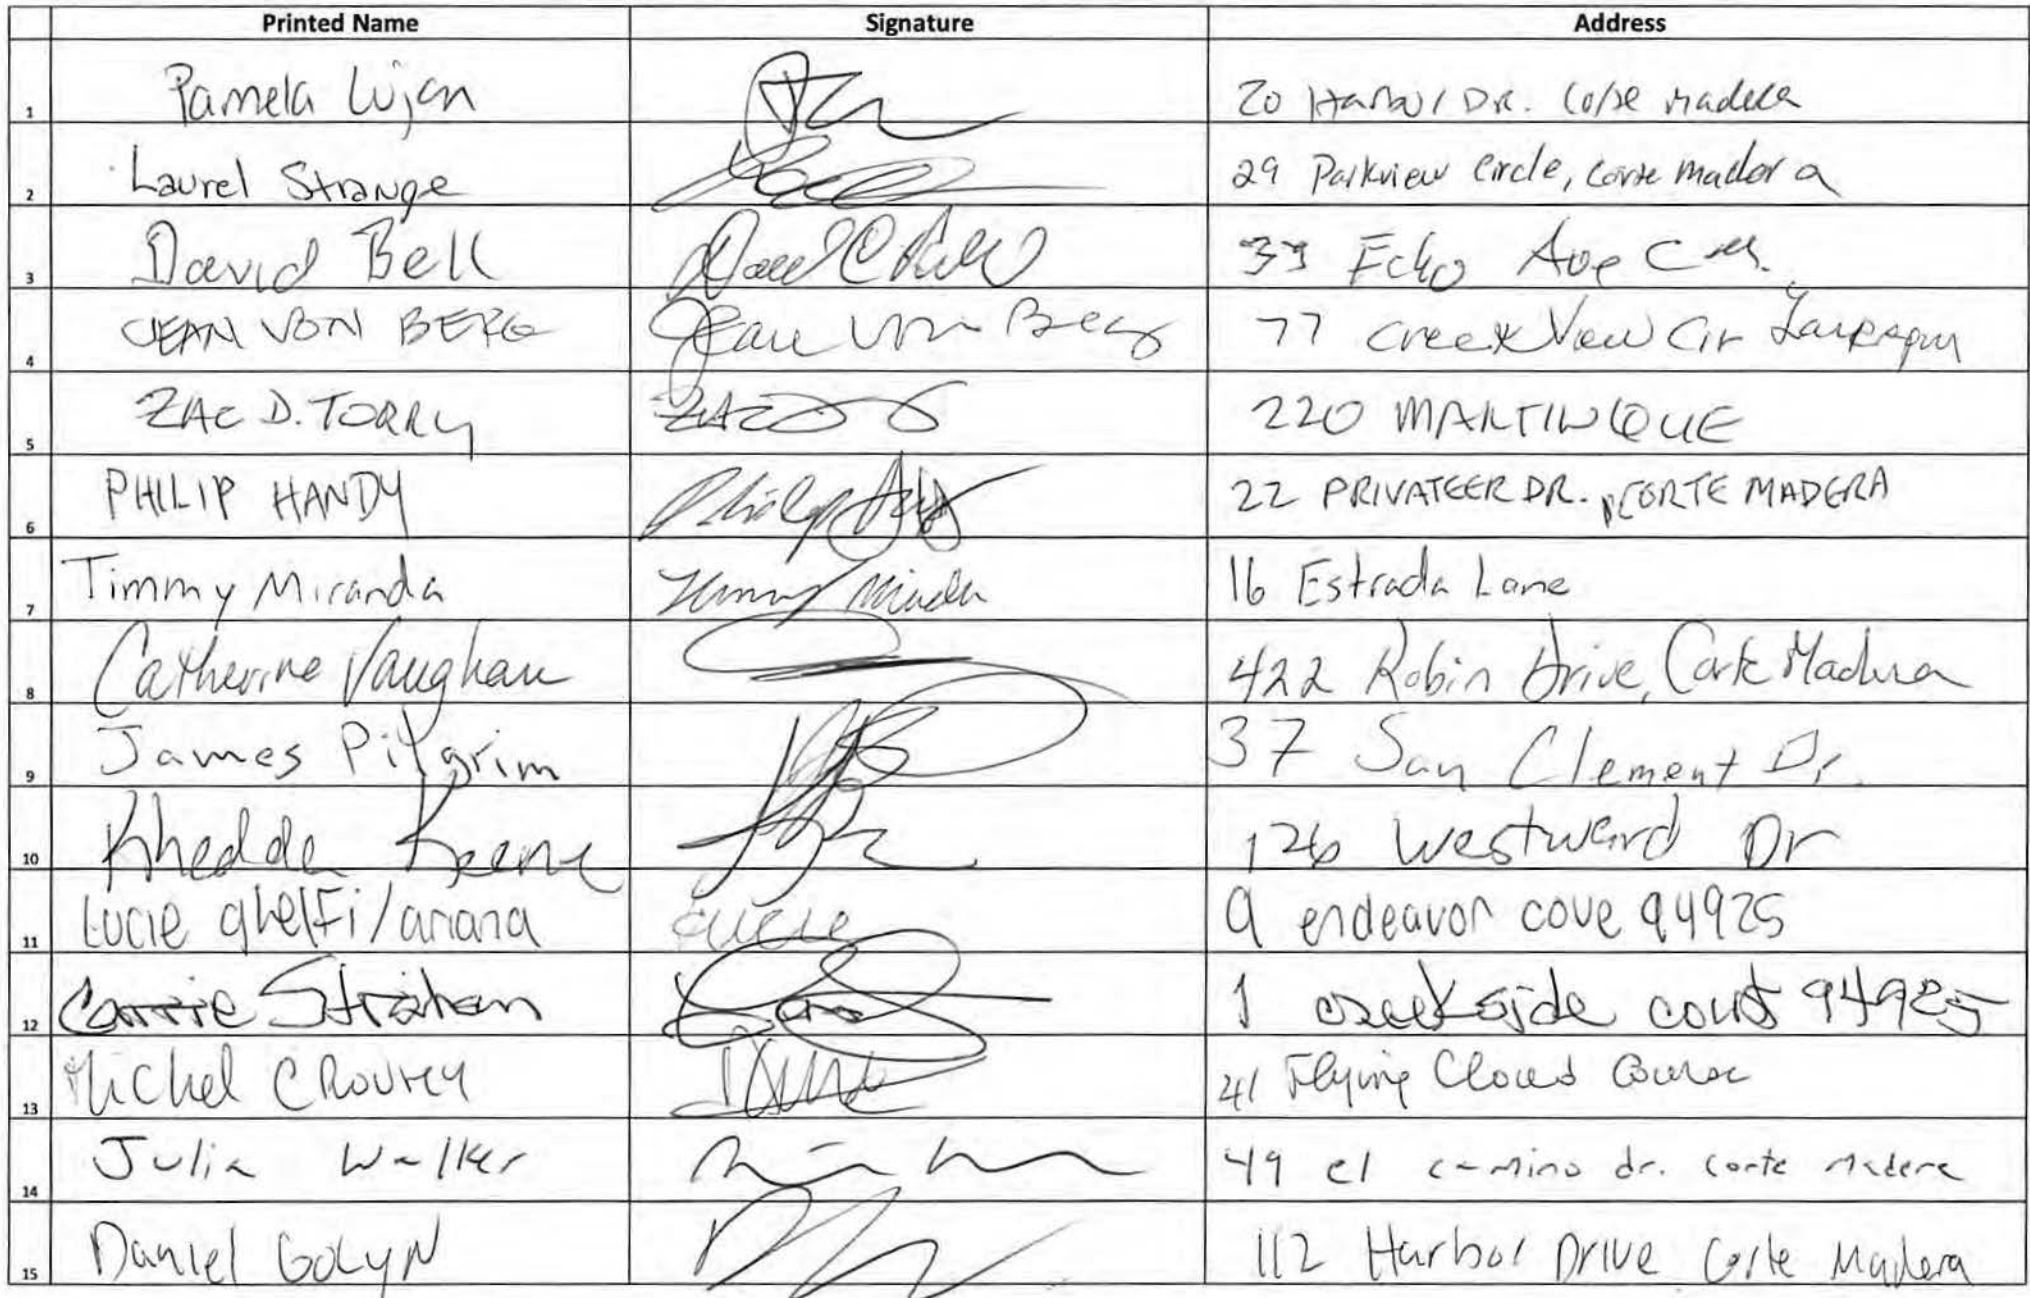 Printed Name Signature Address
1 Pamela Lujan 20 Harbor Dr. Corte Madera
2 Laurel Strange 29 Parkview Circle, Corte Madera
3 David Bell Echo Ave C.M.
4 JEAN VON BERG Jean Von Berg 77 Creek View Cir Larkspur
5 ZAC D. TORRY ZAC 220 MARTINIQUE
6 PHILIP HANDY Philip 22 PRIVATEER DR. CORTE MADERA
7 Timmy Miranda Timmy Miranda 16 Estrada Lane
8 Catherine Vaughan 422 Robin Drive, Corte Madera
9 James Pilgrim 37 San Clement Dr.
10 Khedda Keene 126 Westward Dr
11 Lucie ghelfi/ariana Lucie 9 endeavor cove 94925
12 Carrie Strahan 1 creekside court 94925
13 Michel 41 Flying Cloud Course
14 Julia Walker 49 el camino dr. corte madera
15 Daniel GOLYN 112 Harbor Drive Corte Madera